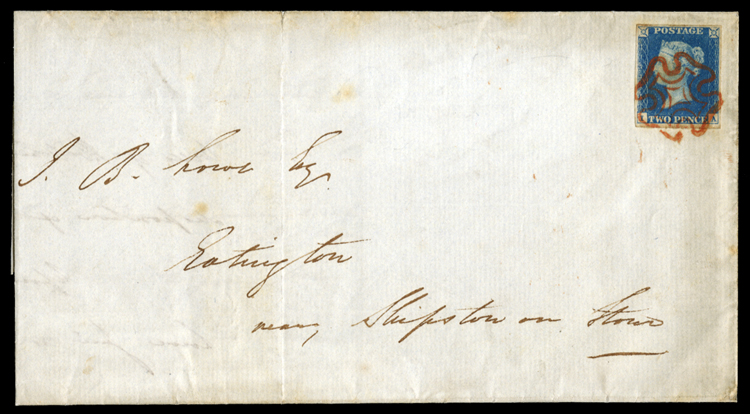 POSTAGE
TWO PENCE
J. B. Lowe Esq.
Eatington
near Shipston on Stour